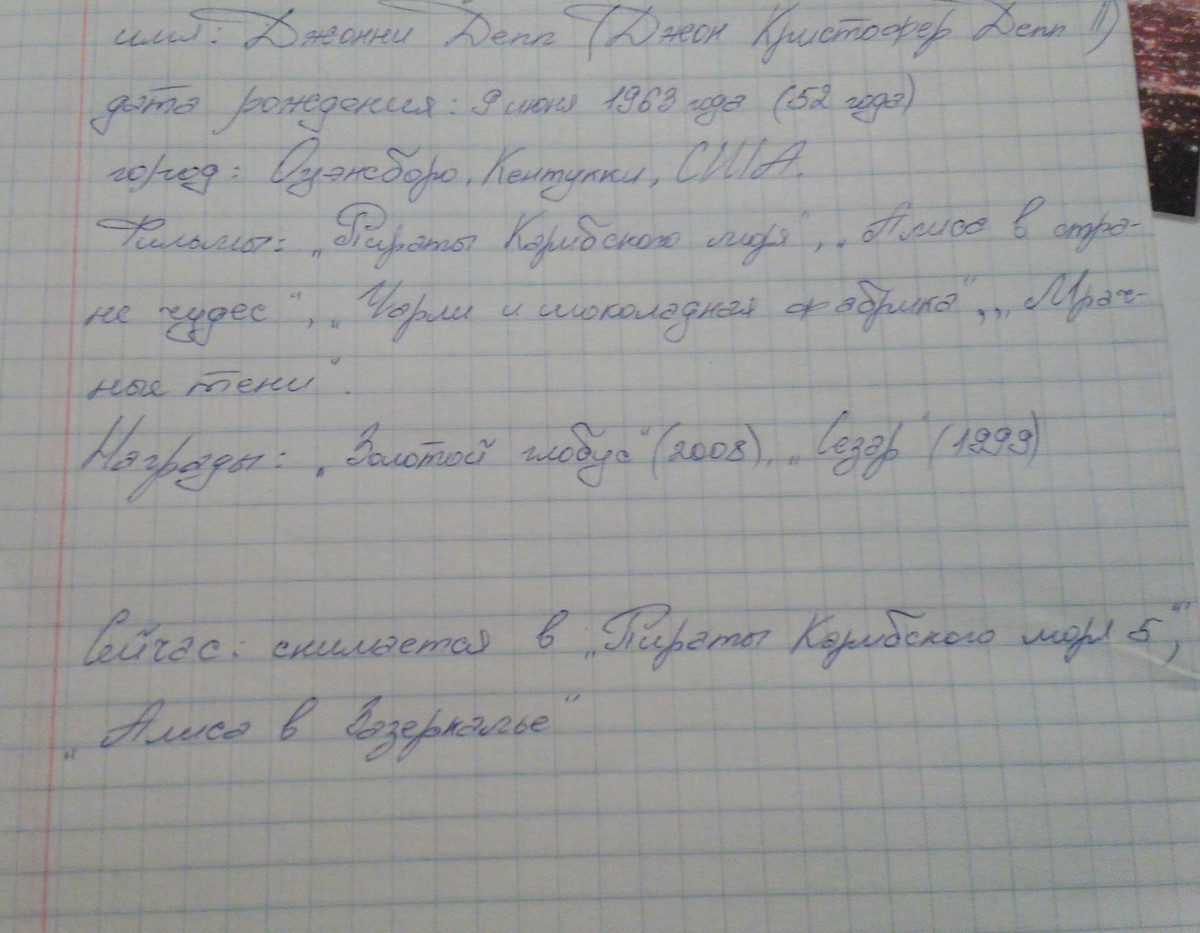 имя: Джонни Депп (Джон Кристофер Депп II)
дата рождения: 9 июня 1963 года (52 года)
город: Оуэнсборо, Кентукки, США.
Фильмы: „Пираты Карибского моря", „Алиса в стра-
не чудес", „Чарли и шоколадная фабрика", „Мрач-
ные тени".
Награды: „Золотой глобус" (2008), „Сезар" (1999)
Сейчас: снимается в „Пираты Карибского моря 5",
„Алиса в Зазеркалье"